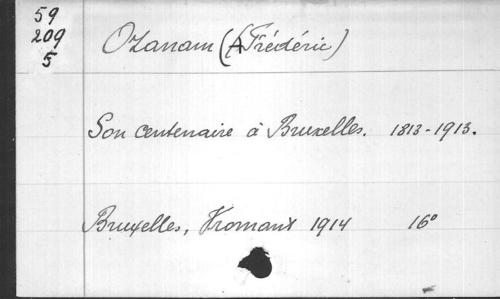 59
209
5
Ozanam (A Frédéric)
Son centenaire à Bruxelles. 1813-1913.
Bruxelles, Vromant 1914 16°